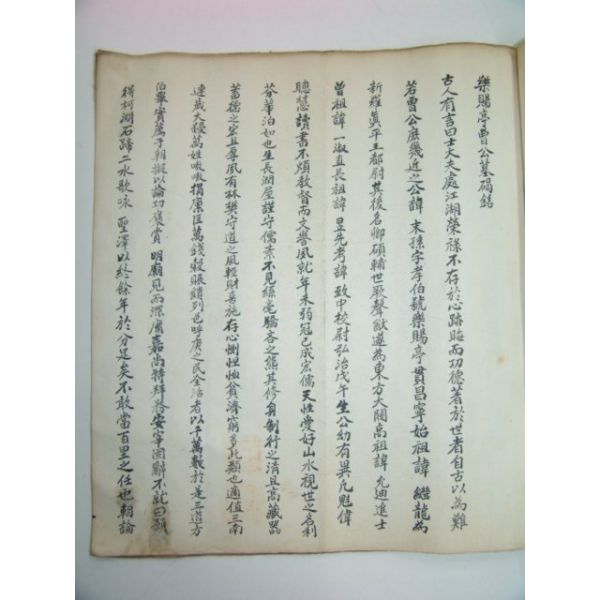 樂賜亭曹公墓碣銘
古人有言曰士大夫處江湖榮祿不存於心跡晦而功德著於世者自古以為難
若曹公庶幾近之公諱 末孫字孝伯號樂賜亭貫昌寧始祖諱 繼龍為
新羅眞平王都尉其後名卿碩輔世厥聲猷遂為東方大閥高祖諱 允迪進士
曾祖諱 一淑直長祖諱 昱先考諱 致中校尉弘治戊午生公幼有異凡魁偉
聰慧讀書不煩敎督而文譽夙就年未弱冠已成宏儒天性愛好山水視世之名利
芬華泊如也生長潤屋謹守儒素不見絲毫驕吝之態其修身制行之清且高藏器
蓄德之宏且尊夙有林樊守道之風輕財善施存心惻怛恤貧濟窮多此類也適值三南
連歲大饑萬姓嗷嗷捐廩臣萬錢穀賑饋列邑呼庚之民全活者以千萬數於是三道方
伯擧實薦于朝擬以論功褒賞 明廟見而深庸嘉尚特拜 安宰固辭不就曰願
得柯湖石蹄二水歌咏 聖澤以終餘年於分足矣不敢當百里之任也朝論